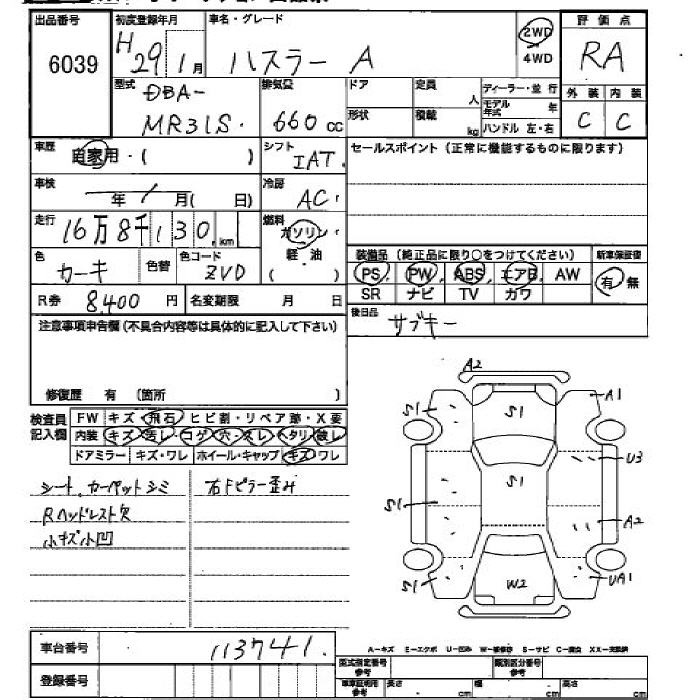 出品番号 初度登録年月 車名・グレード 評価点
6039 H29 1月 ハスラー A 2WD 4WD RA
型式 排気量 ドア 定員 人 ディーラー・並行 外装 内装
DBA-
MR31S. 660 cc 形状 積載 kg モデル年式 年 ハンドル 左・右 C C
車歴 自家用・( ) シフト IAT. セールスポイント(正常に機能するものに限ります)
車検 年 月( 日) 冷房 AC
走行 16万8千130km 燃料 ガソリン
軽・油
( )
色 カーキ 色替 色コード ZVD
装備品(純正品に限り○をつけてください) 新車保証書
PS PW ABS エアB AW 有 無
SR ナビ TV カワ
R券 8,400 円 名変期限 月 日
後日品 サブキー
注意事項申告欄(不具合内容等は具体的に記入して下さい)
修復歴 有 (箇所 )
検査員記入欄 FW キズ・飛石・ヒビ割・リペア跡・X要
内装 キズ・汚レ・コゲ・穴・スレ・ヘタリ・破レ
ドアミラー キズ・ワレ ホイール・キャップ キズ・ワレ
シート、カーペットシミ 右Fピラー歪み
Rヘッドレスト欠
小キズ小凹
A2
S1 S1 A1
S1 S1 U3
A2
S1 W2 UA1
車台番号 113741.
A-キズ E-エクボ U-凹み W-補修跡 S-サビ C-腐食 XX-交換済
登録番号 型式指定番号 参考 類別区分番号 参考
車庫証明用 参考 長さ cm 幅 cm 高さ cm